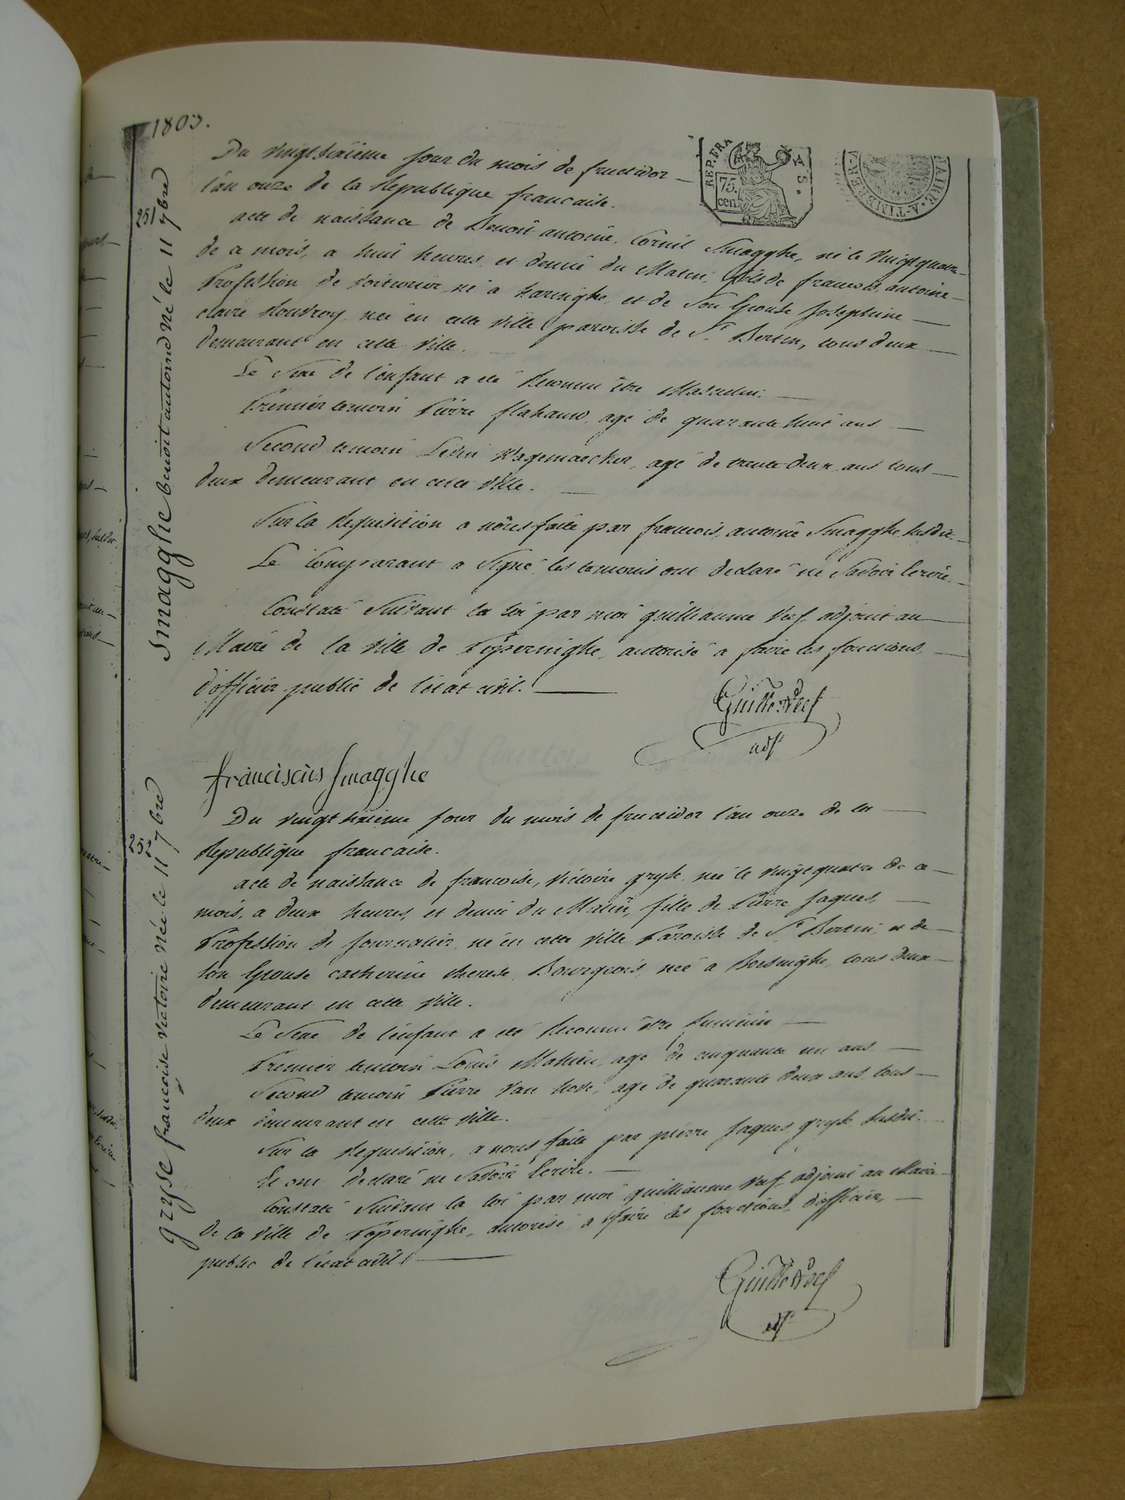 1803.
REP. FRA
75. cen
A. 5.
AIRE. A. TIMBRE ER. A
Du vingt sixieme jour du mois de fructidor
l'an onze de la Republique francaise.
251
Smagghe benoit antoine né le 11 7bre
acte de naissance de Benoit antoine, Cornil Smagghe, né le vingt quatre
de ce mois, a huit heures et demie du Matin, fils de francois antoine
Profession de voiturier, né a Haringhe, et de Son Epouse Josephine
claire Houvroy, née en cette ville paroisse de St. Bertin, tous deux
demeurant en cette ville.
Le Sexe de l'enfant a eté Reconnu être Masculin.
Premier temoin Pierre flahauw, agé de quarante huit ans
Second temoin Levin Wagemaecker, agé de trente deux ans tous
deux demeurant en cette ville.
Sur la Requisition a nous faite par francois antoine Smagghe susdit
Le Comparant a Signé, les temoins ont declaré ne Savoir Ecrire.
Constaté Suivant la loi par moi guilliaume Verf, adjoint au
Maire de la ville de Poperinghe, autorisé a faire les fonctions
d'officier public de l'etat civil.
Guille Verf
adjt
franciscus Smagghe
252
gryse françoise victoire née le 11 7bre
Du vingt sixieme jour du mois de fructidor l'an onze de la
Republique francaise.
acte de naissance de francoise, victoire gryse, née le vingt quatre de ce
mois, a deux heures et demie du Matin, fille de Pierre Jaques,
Profession de Journalier, né en cette ville Paroisse de St. Bertin et de
son Epouse catherine therese Bourgeois née a Boesinghe, tous deux
demeurant en cette ville.
Le Sexe de l'enfant a eté Reconnu être feminin
Premier temoin Louis Mahieu, agé de cinquante un ans
Second temoin Pierre Van hove, agé de quarante deux ans tous
deux demeurant en cette ville.
Sur la Requisition, a nous faite par pierre Jaques gryse susdit.
Ils ont declaré ne Savoir Ecrire.
Constaté Suivant la loi par moi guilliaume Verf, adjoint au Maire
de la ville de Poperinghe, autorisé a faire les fonctions d'officier
public de l'etat civil.
Guille Verf
adjt